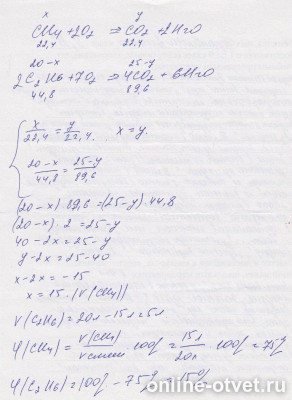 x y
CH₄ + 2O₂ ⇒ CO₂ + 2H₂O
22,4 22,4
20-x 25-y
2C₂H₆ + 7O₂ ⇒ 4CO₂ + 6H₂O
44,8 89,6
x/22,4 = y/22,4 x = y.
20-x/44,8 = 25-y/89,6
(20-x)·89,6 = (25-y)·44,8
(20-x)·2 = 25-y
40-2x = 25-y
y-2x = 25-40
x-2x = -15
x = 15 · (V(CH₄))
V(C₂H₆) = 20л - 15л = 5л
φ(CH₄) = V(CH₄)/Vсмеси · 100% = 15л/20л · 100% = 75%
φ(C₂H₆) = 100% - 75% = 15%
online-otvet.ru